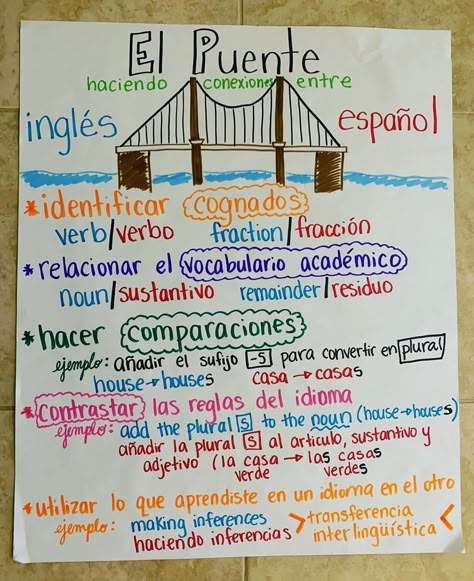 El Puente
haciendo conexiones entre
inglés español
*identificar cognados
verb/verbo fraction/fracción
*relacionar el vocabulario académico
noun/sustantivo remainder/residuo
*hacer comparaciones
ejemplo: añadir el sufijo -s para convertir en plural
house→houses casa→casas
*contrastar las reglas del idioma
ejemplo: add the plural s to the noun (house→houses)
añadir la plural s al artículo, sustantivo y
adjetivo (la casa → las casas
verde verdes
*utilizar lo que aprendiste en un idioma en el otro
ejemplo: making inferences > transferencia
haciendo inferencias interlingüística <